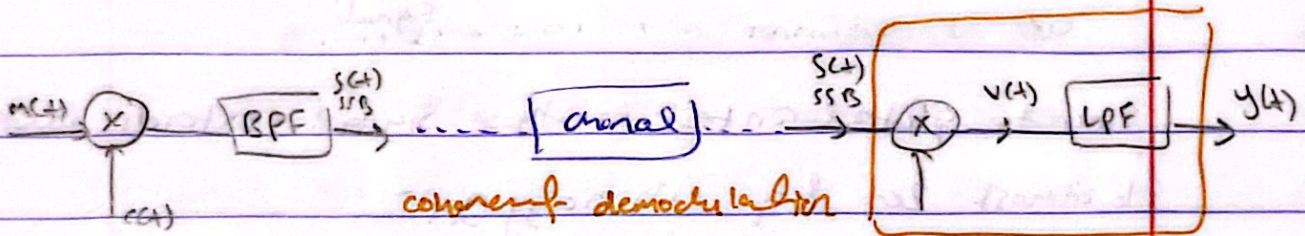 m(t) X BPF S(t) SSB channal S(t) SSB X v(t) LPF y(t)
c(t)
coherent demodulation